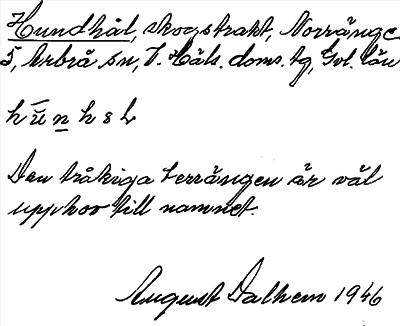 Hundhål, skogstrakt, Norränge
5, Arbrå sn, V. Häls. doms. tg, Gvl. län
hūnhsl
Den tråkiga terrängen är väl
upphov till namnet.
August Dalhem 1946